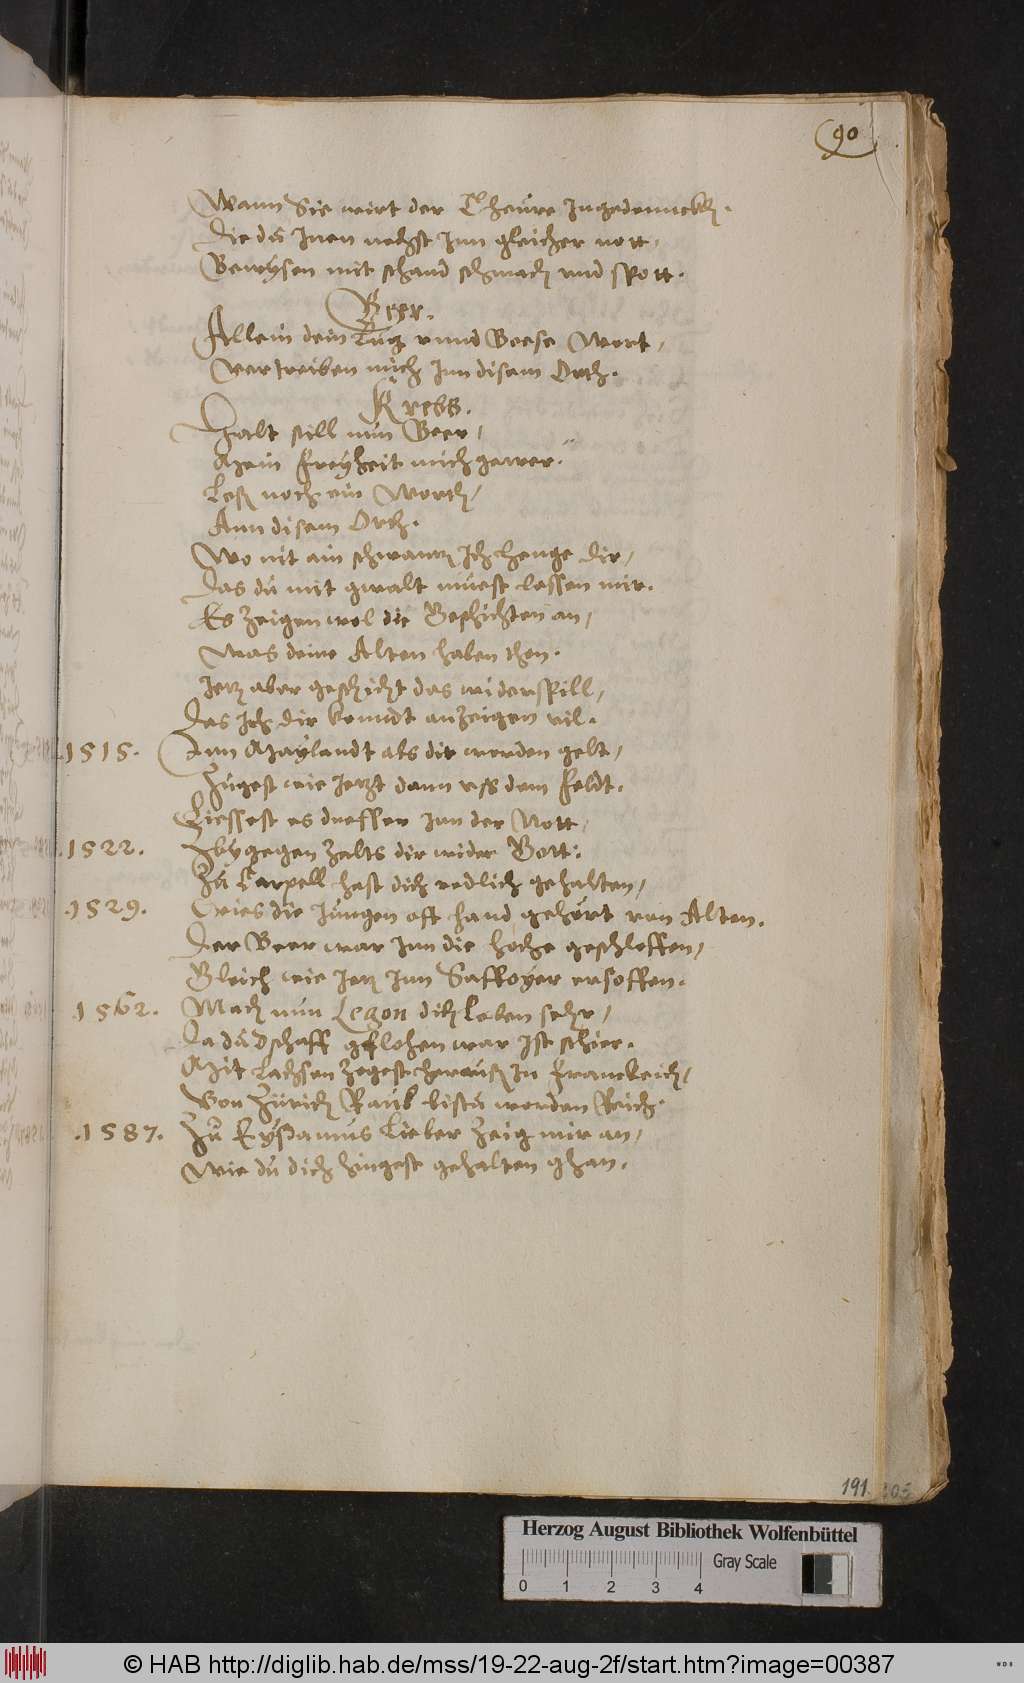 90
Wann Sie wirt der Theure Ingedennckh.
Die du Inen nechst Inn gleicher nott,
Bewysen mit schand schmach und spott.
Beer.
Allein dein Lug unnd Beese Wort,
Vertreiben mich Inn disem Orth.
Krebs.
Halt still mün Beer,
Mein Freyheit mich gewer.
Leß noch ein Worth,
Ann disem Orth.
Wo nit ain schwantz Ich henge dir,
Das du mit gwalt muest lassen mir.
Es Zeigen wol die Geschichten an,
Was deine Alten haben thon.
Jetz aber geschicht das widerspill,
Das Ich dir konndt anzeigen vil.
.1515. Inn Maylandt als dir worden gelt,
Zugest wie Jetzt dann uss dem Feldt.
Liessest es dueffer Inn der Nott,
.1522. gegen Zalts dir wider Gott.
Zu Cappell hast dich redlich gehalten,
.1529. Wies die Jungen oft hand gehört von Alten.
Der Beer war Inn die hoche geschloffen,
Gleich wie Jetz Inn Saffoyer ersoffen.
.1562. Mach nun Legon dich Loben sehr,
Da du dschaff geflohen war Ist schier.
Mit Lachsen Zogest heraus In Franckreich,
Von Zürich Raub bistu worden Reich.
.1587. Zu Lieber Zeig mir an,
Wie du dich hingest gehalten ghan.
191
105
Herzog August Bibliothek Wolfenbüttel
Gray Scale
0 1 2 3 4
© HAB http://diglib.hab.de/mss/19-22-aug-2f/start.htm?image=00387